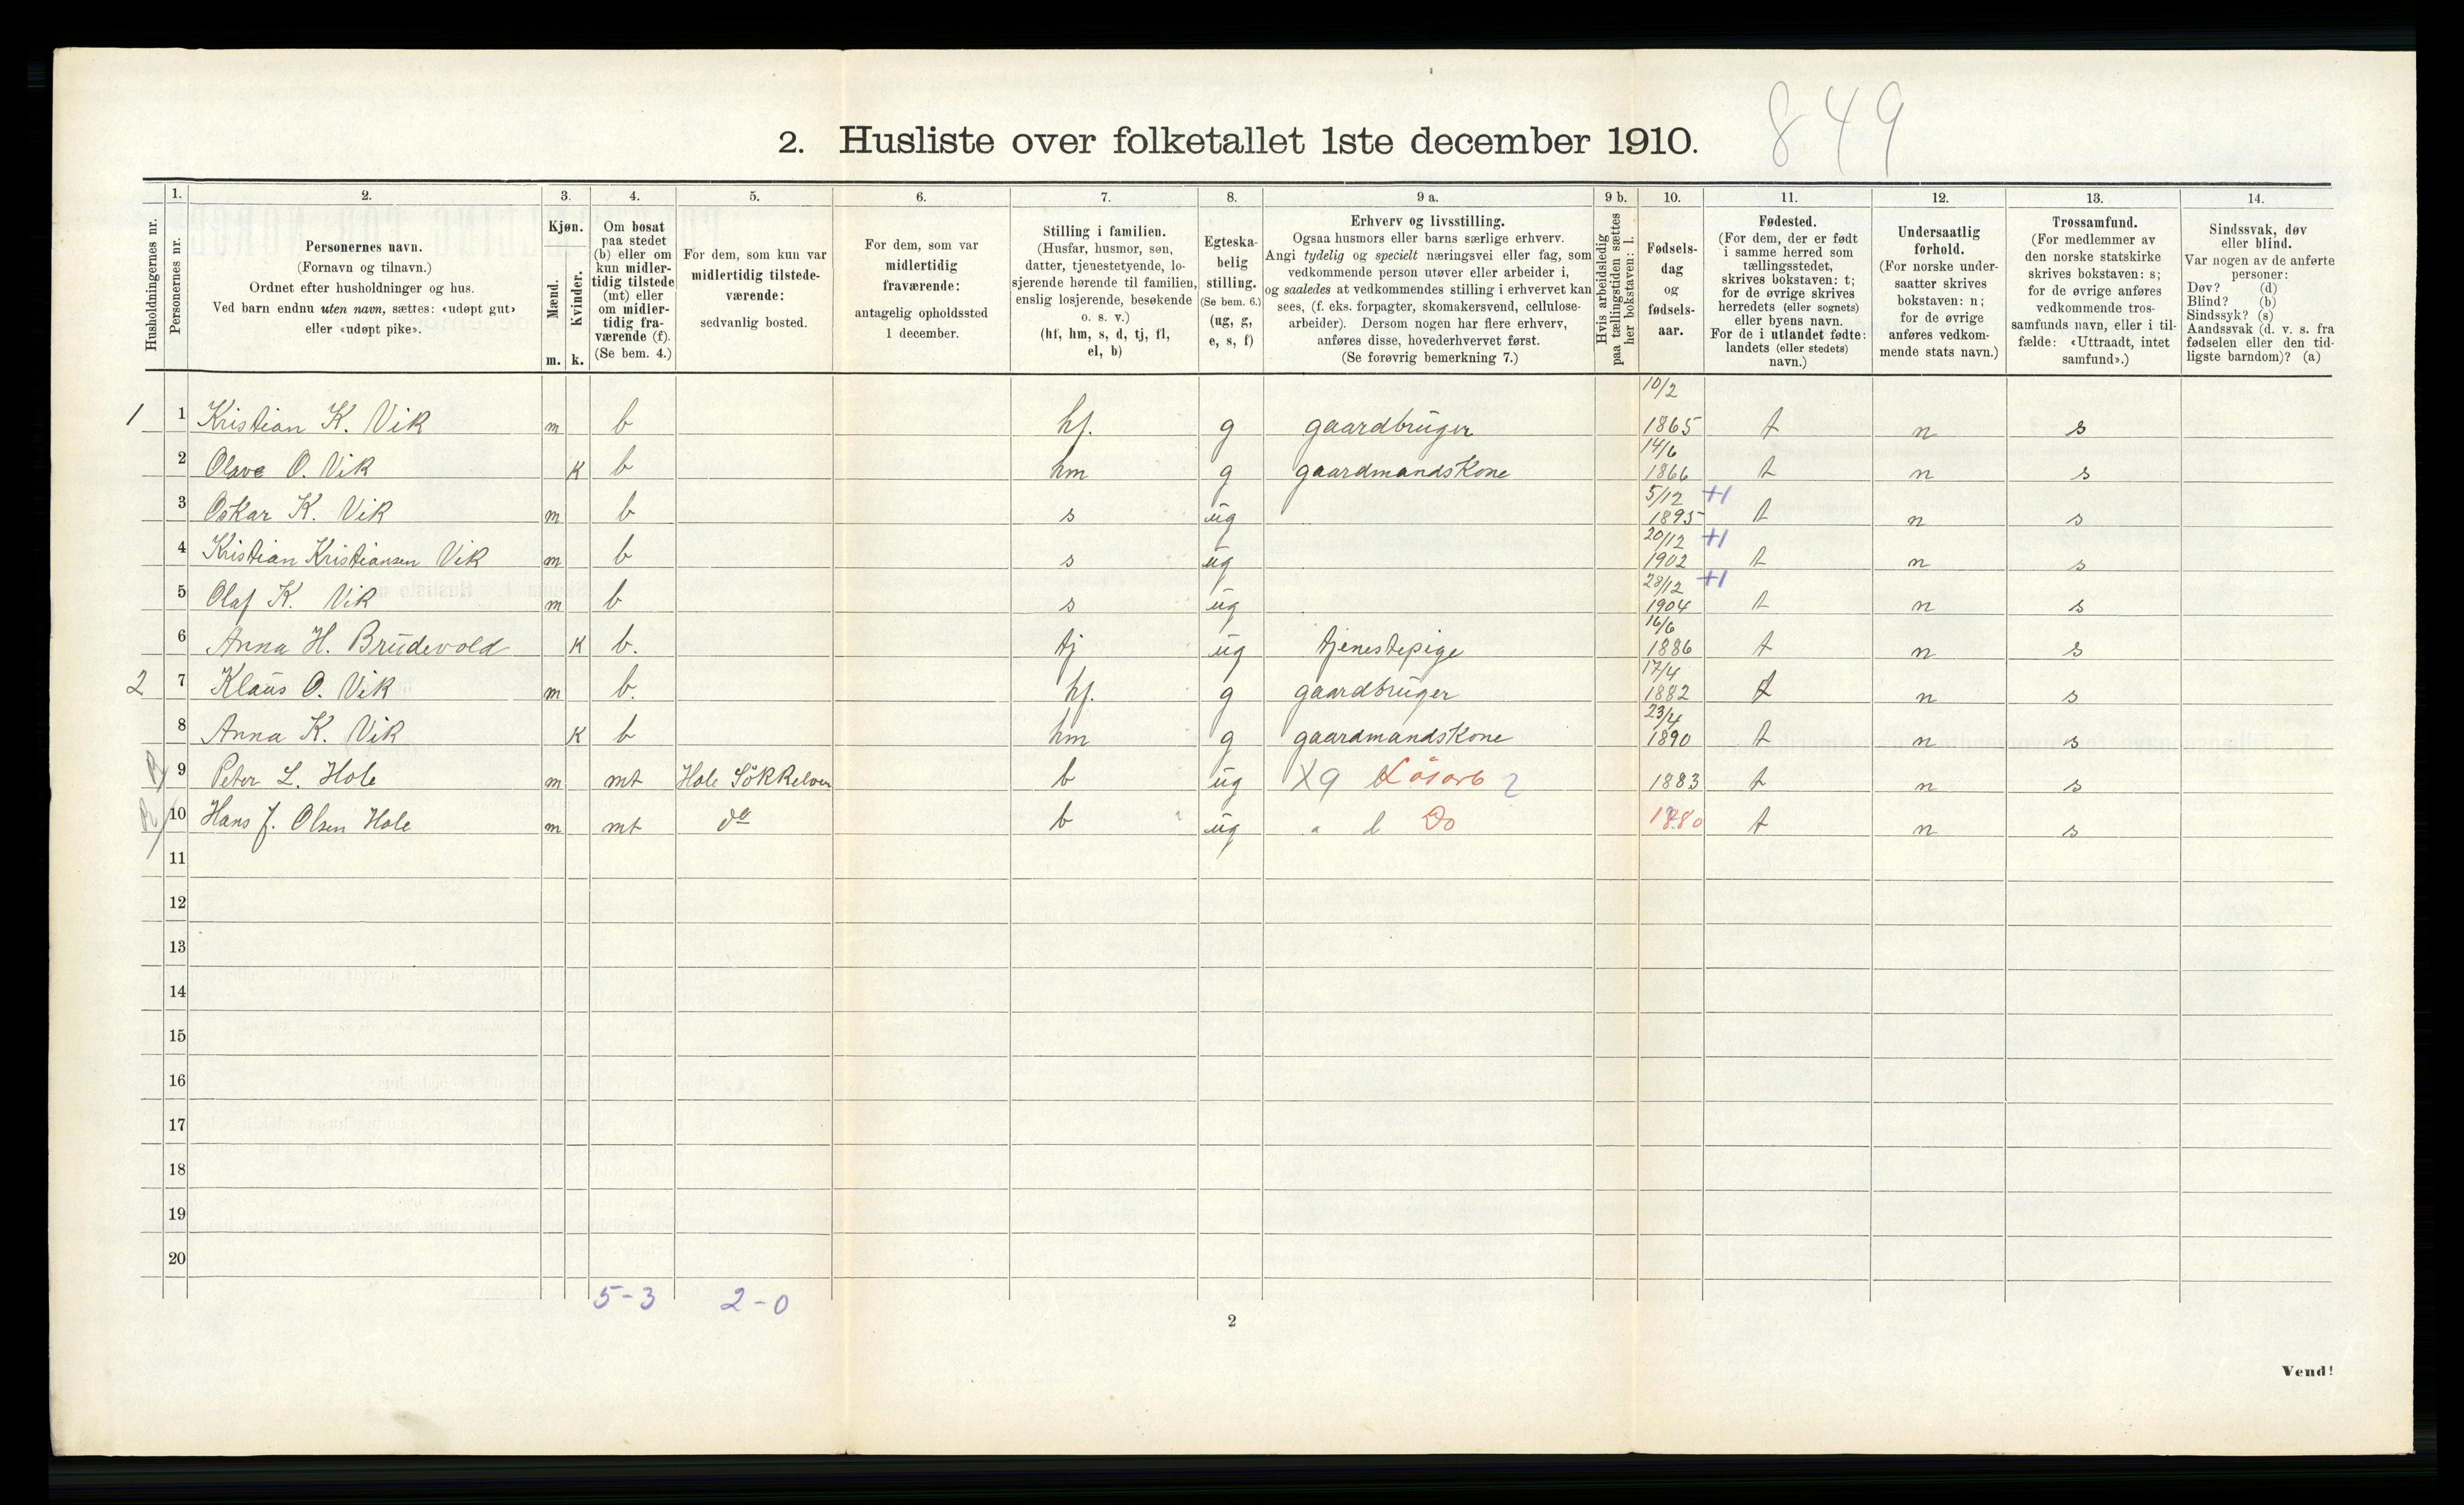 849
2. Husliste over folketallet 1ste december 1910.
Husholdningernes nr.
1. Personernes nr.
2. Personernes navn.
(Fornavn og tilnavn.)
Ordnet efter husholdninger og hus.
Ved barn endnu uten navn, sættes: «udøpt gut»
eller «udøpt pike».
3. Kjøn.
Mænd. m.
Kvinder. k.
4. Om bosat
paa stedet
(b) eller om
kun midler-
tidig tilstede
(mt) eller
om midler-
tidig fra-
værende (f).
(Se bem. 4.)
5. For dem, som kun var
midlertidig tilstede-
værende:
sedvanlig bosted.
6. For dem, som var
midlertidig
fraværende:
antagelig opholdssted
1 december.
7. Stilling i familien.
(Husfar, husmor, søn,
datter, tjenestetyende, lo-
sjerende hørende til familien,
enslig losjerende, besøkende
o. s. v.)
(hf, hm, s, d, tj, fl,
el, b)
8. Egteska-
belig
stilling.
(Se bem. 6.)
(ug, g,
e, s, f)
9 a. Erhverv og livsstilling.
Ogsaa husmors eller barns særlige erhverv.
Angi tydelig og specielt næringsvei eller fag, som
vedkommende person utøver eller arbeider i,
og saaledes at vedkommendes stilling i erhvervet kan
sees, (f. eks. forpagter, skomakersvend, cellulose-
arbeider). Dersom nogen har flere erhverv,
anføres disse, hovederhvervet først.
(Se forøvrig bemerkning 7.)
9 b. Hvis arbeidsledig
paa tællingstiden sættes
her bokstaven: l.
10. Fødsels-
dag
og
fødsels-
aar.
11. Fødested.
(For dem, der er født
i samme herred som
tællingsstedet,
skrives bokstaven: t;
for de øvrige skrives
herredets (eller sognets)
eller byens navn.
For de i utlandet fødte:
landets (eller stedets)
navn.)
12. Undersaatlig
forhold.
(For norske under-
saatter skrives
bokstaven: n;
for de øvrige
anføres vedkom-
mende stats navn.)
13. Trossamfund.
(For medlemmer av
den norske statskirke
skrives bokstaven: s;
for de øvrige anføres
vedkommende tros-
samfunds navn, eller i til-
fælde: «Uttraadt, intet
samfund».)
14. Sindssvak, døv
eller blind.
Var nogen av de anførte
personer:
Døv? (d)
Blind? (b)
Sindssyk? (s)
Aandssvak (d. v. s. fra
fødselen eller den tid-
ligste barndom)? (a)
1 1 Kristian K. Vik m b hf. g gaardbruger 10/2 1865 t n s
2 Olave O. Vik k b hm g gaardmandskone 14/6 1866 t n s
3 Oskar K. Vik m b s ug 5/12 1895 +1 t n s
4 Kristian Kristiansen Vik m b s ug 20/12 1902 +1 t n s
5 Olaf K. Vik m b s ug 28/12 1904 +1 t n s
6 Anna H. Brudevold k b. tj ug tjenestepige 16/6 1886 t n s
2 7 Klaus O. Vik m b. hf. g gaardbruger 17/4 1882 t n s
8 Anna K. Vik k b hm g gaardmandskone 23/4 1890 t n s
9 Peter L. Hole m mt Hole Sökkelven b ug X9 Løsarb 2 1883 t n s
10 Hans J. Olsen Hole m mt do b ug " l Do 1880 t n s
11
12
13
14
15
16
17
18
19
20
5-3 2-0
2
Vend!